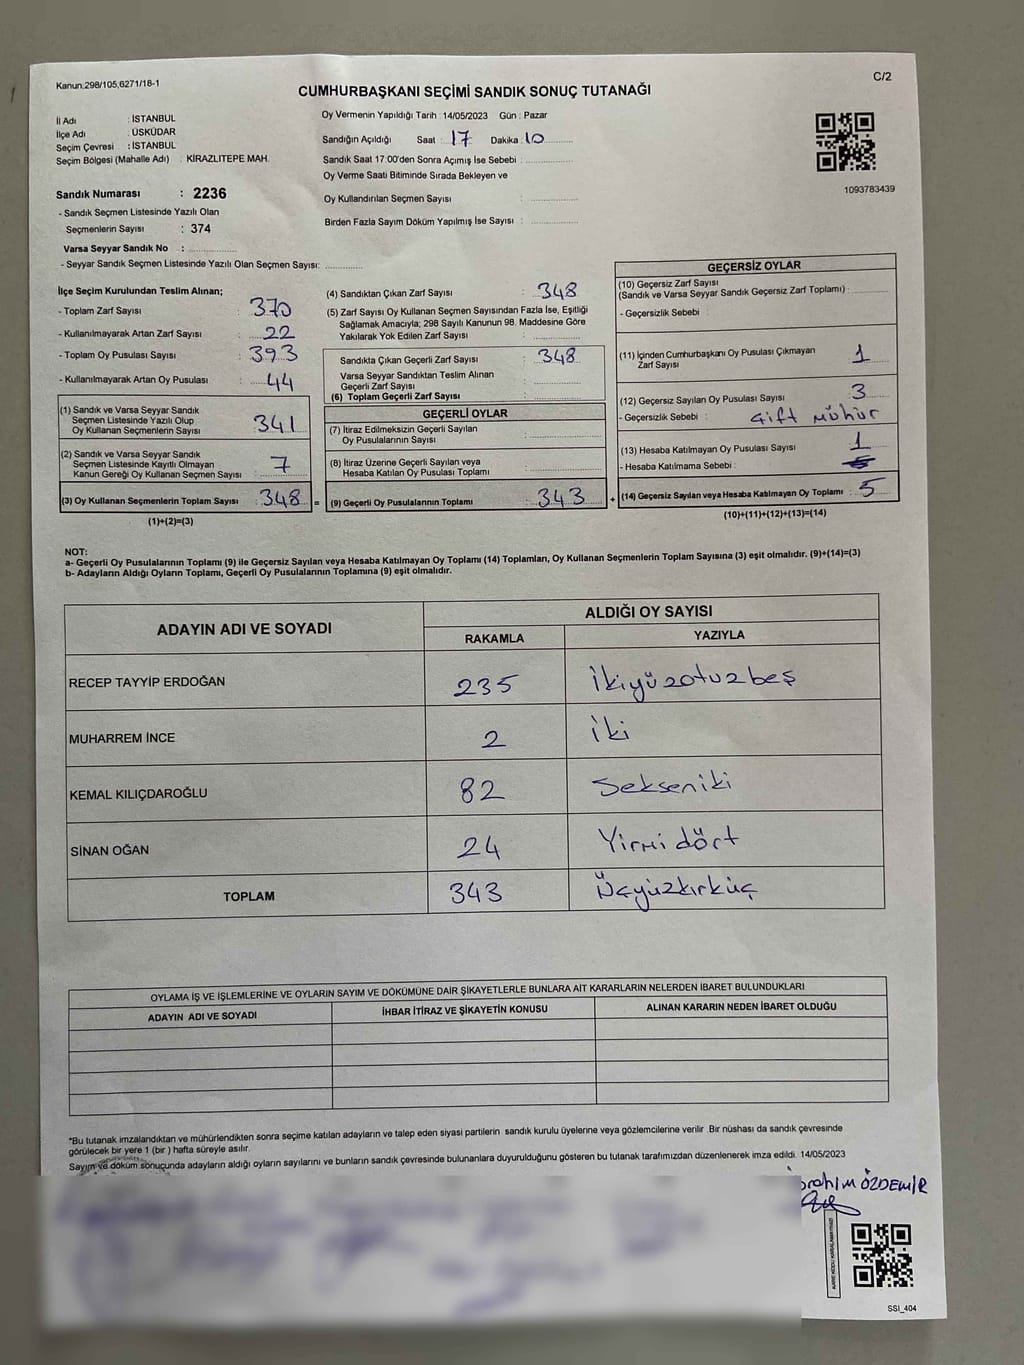 Kanun:298/105,6271/18-1
C/2
CUMHURBAŞKANI SEÇİMİ SANDIK SONUÇ TUTANAĞI
İl Adı : İSTANBUL
İlçe Adı : ÜSKÜDAR
Seçim Çevresi : İSTANBUL
Seçim Bölgesi (Mahalle Adı) : KİRAZLITEPE MAH.
Sandık Numarası : 2236
- Sandık Seçmen Listesinde Yazılı Olan
Seçmenlerin Sayısı : 374
Varsa Seyyar Sandık No :
- Seyyar Sandık Seçmen Listesinde Yazılı Olan Seçmen Sayısı:
Oy Vermenin Yapıldığı Tarih : 14/05/2023 Gün : Pazar
Sandığın Açıldığı Saat : 17 Dakika : 10
Sandık Saat 17.00'den Sonra Açımış İse Sebebi :
Oy Verme Saati Bitiminde Sırada Bekleyen ve
Oy Kullandırılan Seçmen Sayısı :
Birden Fazla Sayım Döküm Yapılmış İse Sayısı :
1093783439
İlçe Seçim Kurulundan Teslim Alınan;
- Toplam Zarf Sayısı : 370
- Kullanılmayarak Artan Zarf Sayısı : 22
- Toplam Oy Pusulası Sayısı : 393
- Kullanılmayarak Artan Oy Pusulası : 44
(1) Sandık ve Varsa Seyyar Sandık
Seçmen Listesinde Yazılı Olup
Oy Kullanan Seçmenlerin Sayısı : 341
(2) Sandık ve Varsa Seyyar Sandık
Seçmen Listesinde Kayıtlı Olmayan
Kanun Gereği Oy Kullanan Seçmen Sayısı : 7
(3) Oy Kullanan Seçmenlerin Toplam Sayısı : 348 =
(1)+(2)=(3)
(4) Sandıktan Çıkan Zarf Sayısı : 348
(5) Zarf Sayısı Oy Kullanan Seçmen Sayısından Fazla İse, Eşitliği
Sağlamak Amacıyla; 298 Sayılı Kanunun 98. Maddesine Göre
Yakılarak Yok Edilen Zarf Sayısı :
Sandıkta Çıkan Geçerli Zarf Sayısı : 348
Varsa Seyyar Sandıktan Teslim Alınan
Geçerli Zarf Sayısı :
(6) Toplam Geçerli Zarf Sayısı :
GEÇERLİ OYLAR
(7) İtiraz Edilmeksizin Geçerli Sayılan
Oy Pusulalarının Sayısı :
(8) İtiraz Üzerine Geçerli Sayılan veya
Hesaba Katılan Oy Pusulası Toplamı :
(9) Geçerli Oy Pusulalarının Toplamı : 343 +
GEÇERSİZ OYLAR
(10) Geçersiz Zarf Sayısı
(Sandık ve Varsa Seyyar Sandık Geçersiz Zarf Toplamı) :
- Geçersizlik Sebebi :
(11) İçinden Cumhurbaşkanı Oy Pusulası Çıkmayan
Zarf Sayısı : 1
(12) Geçersiz Sayılan Oy Pusulası Sayısı : 3
- Geçersizlik Sebebi : Çift Mühür
(13) Hesaba Katılmayan Oy Pusulası Sayısı : 1
- Hesaba Katılmama Sebebi :
(14) Geçersiz Sayılan veya Hesaba Katılmayan Oy Toplamı : 5
(10)+(11)+(12)+(13)=(14)
NOT:
a- Geçerli Oy Pusulalarının Toplamı (9) ile Geçersiz Sayılan veya Hesaba Katılmayan Oy Toplamı (14) Toplamları, Oy Kullanan Seçmenlerin Toplam Sayısına (3) eşit olmalıdır. (9)+(14)=(3)
b- Adayların Aldığı Oyların Toplamı, Geçerli Oy Pusulalarının Toplamına (9) eşit olmalıdır.
ADAYIN ADI VE SOYADI
ALDIĞI OY SAYISI
RAKAMLA YAZIYLA
RECEP TAYYİP ERDOĞAN 235 İkiyüzotuzbeş
MUHARREM İNCE 2 İki
KEMAL KILIÇDAROĞLU 82 Sekseniki
SİNAN OĞAN 24 Yirmi dört
TOPLAM 343 Üçyüzkırküç
OYLAMA İŞ VE İŞLEMLERİNE VE OYLARIN SAYIM VE DÖKÜMÜNE DAİR ŞİKAYETLERLE BUNLARA AİT KARARLARIN NELERDEN İBARET BULUNDUKLARI
ADAYIN ADI VE SOYADI İHBAR İTİRAZ VE ŞİKAYETİN KONUSU ALINAN KARARIN NEDEN İBARET OLDUĞU
*Bu tutanak imzalandıktan ve mühürlendikten sonra seçime katılan adayların ve talep eden siyasi partilerin sandık kurulu üyelerine veya gözlemcilerine verilir .Bir nüshası da sandık çevresinde
görülecek bir yere 1 (bir ) hafta süreyle asılır.
Sayım ve döküm sonuçunda adayların aldığı oyların sayılarını ve bunların sandık çevresinde bulunanlara duyurulduğunu gösteren bu tutanak tarafımızdan düzenlenerek imza edildi. 14/05/2023
brahim ÖZDEMİR
KARE KODU KARALAMAYINIZ!
SSI_404